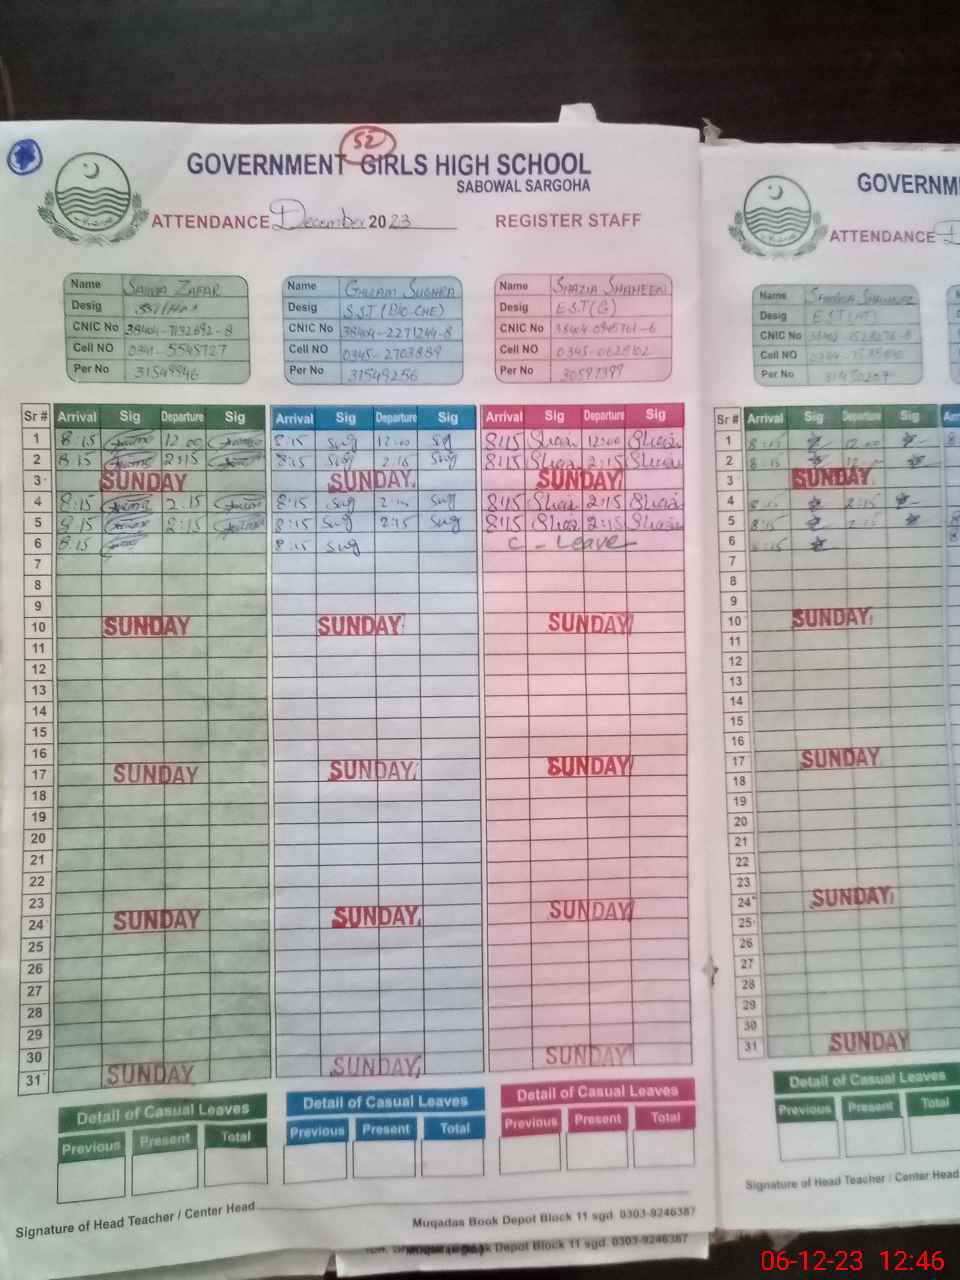 52
GOVERNMENT GIRLS HIGH SCHOOL
SABOWAL SARGOHA
ATTENDANCE December 2023 REGISTER STAFF
Name SAIMA ZAFAR
Desig
CNIC No 38404-7132892-8
Cell NO 0341-5545727
Per No 31549946
Name GHULAM SUGHRA
Desig S.S.T (BIO-CHE)
CNIC No 38404-2271244-8
Cell NO 0345-2703889
Per No 31549256
Name SHAZIA SHAHEEN
Desig E.S.T (G)
CNIC No 38404-0945761-6
Cell NO 0345-0628102
Per No 30597399
Sr # Arrival Sig Departure Sig Arrival Sig Departure Sig Arrival Sig Departure Sig
1 8:15 12:00 8:15 Sug 12:00 Sug 8:15 Shazia 12:00 Shazia
2 8:15 2:15 8:15 Sug 2:15 Sug 8:15 Shazia 2:15 Shazia
3 SUNDAY SUNDAY SUNDAY
4 8:15 2:15 8:15 Sug 2:15 Sug 8:15 Shazia 2:15 Shazia
5 8:15 2:15 8:15 Sug 2:15 Sug 8:15 Shazia 2:15 Shazia
6 8:15 8:15 Sug C - Leave
7
8
9
10 SUNDAY SUNDAY SUNDAY
11
12
13
14
15
16
17 SUNDAY SUNDAY SUNDAY
18
19
20
21
22
23
24 SUNDAY SUNDAY SUNDAY
25
26
27
28
29
30
31 SUNDAY SUNDAY SUNDAY
Detail of Casual Leaves Detail of Casual Leaves Detail of Casual Leaves
Previous Present Total Previous Present Total Previous Present Total
Signature of Head Teacher / Center Head
Muqadas Book Depot Block 11 sgd 0303-9246387
k Depot Block 11 sgd. 0303-9246387
GOVERNM
ATTENDANCE
Name
Desig
CNIC No
Cell NO
Per No
Sr # Arrival Sig Departure Sig
1 8:15 12:00
2 8:15
3 SUNDAY
4 8:15 2:15
5 8:15 2:15
6 8:15
7
8
9
10 SUNDAY
11
12
13
14
15
16
17 SUNDAY
18
19
20
21
22
23
24 SUNDAY
25
26
27
28
29
30
31 SUNDAY
Detail of Casual Leaves
Previous Present Total
Signature of Head Teacher / Center Head
06-12-23 12:46